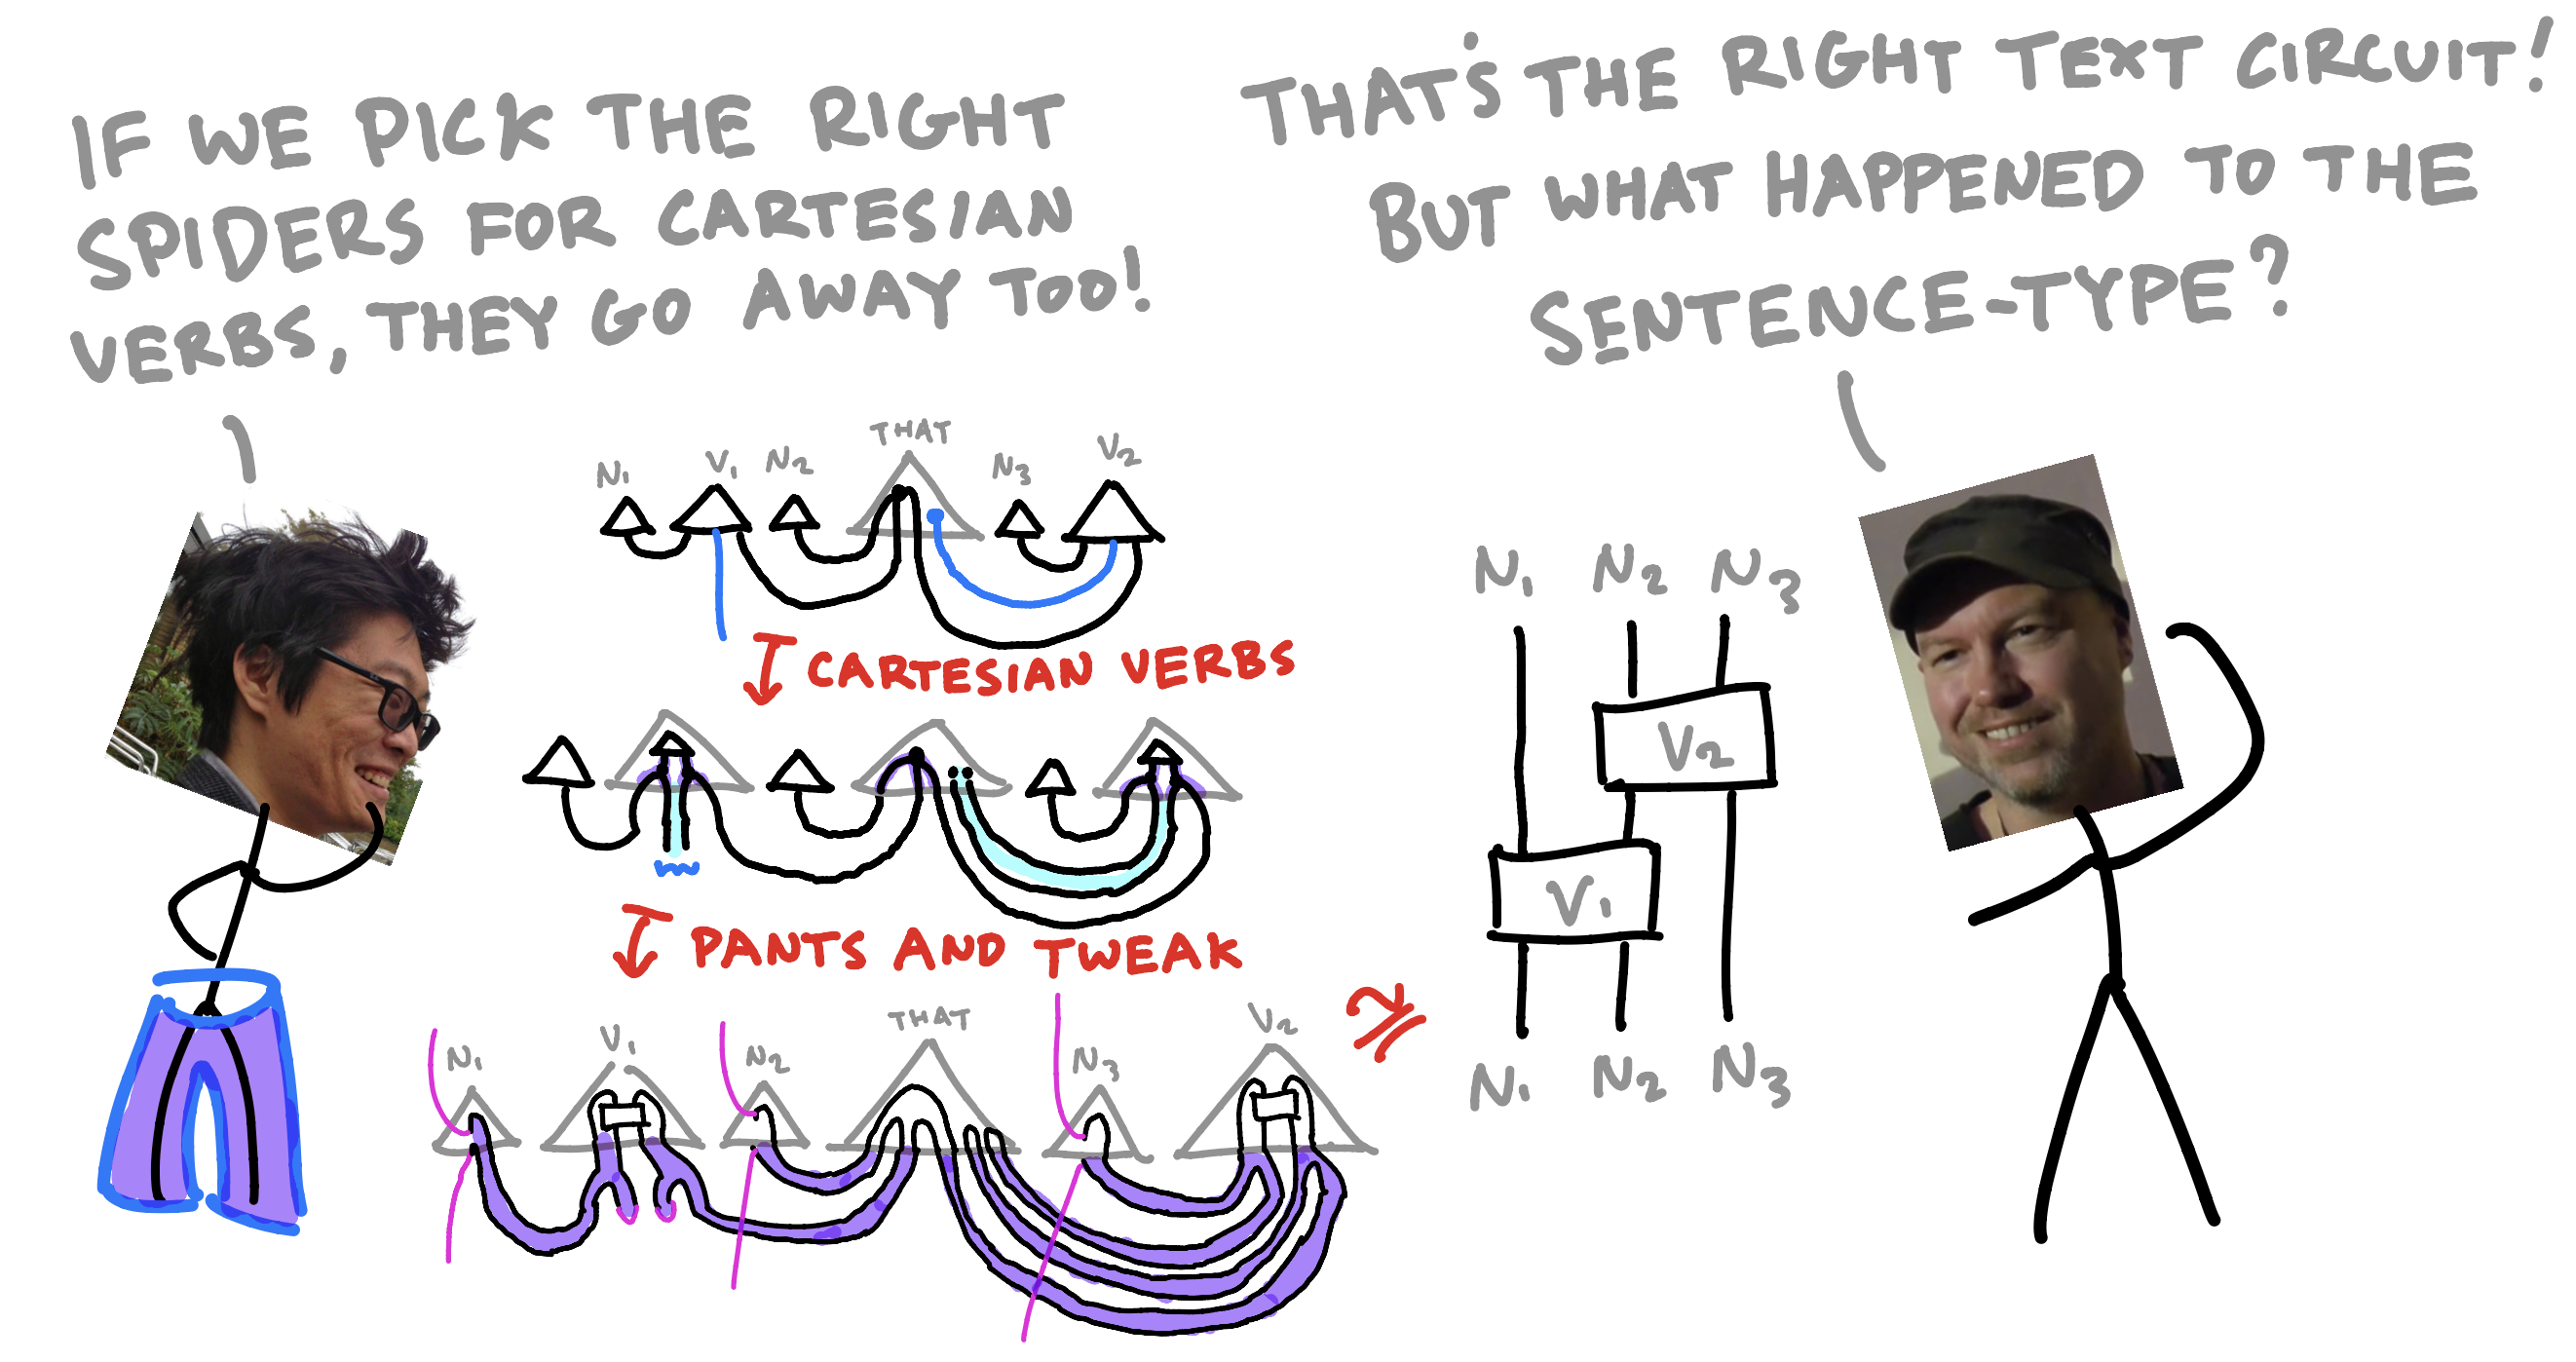 IF WE PICK THE RIGHT
SPIDERS FOR CARTESIAN
VERBS, THEY GO AWAY TOO!
THAT'S THE RIGHT TEXT CIRCUIT!
BUT WHAT HAPPENED TO THE
SENTENCE-TYPE?
N₁ V₁ N₂ THAT N₃ V₂
CARTESIAN VERBS
PANTS AND TWEAK
N₁ V₁ N₂ THAT N₃ V₂
N₁ N₂ N₃
V₂
V₁
N₁ N₂ N₃